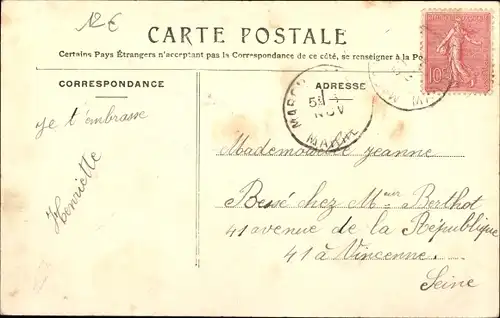 12€
CARTE POSTALE
Certains Pays Étrangers n'acceptant pas la Correspondance de ce côté, se renseigner à la Po
CORRESPONDANCE
ADRESSE
10c
5
NOV
MARNE
Je t'embrasse
Henriette
Mademoiselle Jeanne
Bessé chez Meur Berthot
41 avenue de la République
41 à Vincenne
Seine